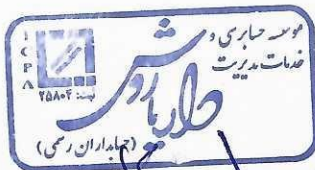 موسسه حسابرسی و
خدمات مدیریت
داریا روش
(حسابداران رسمی)
I
C
P
A
ثبت: ۲۵۸۰۲